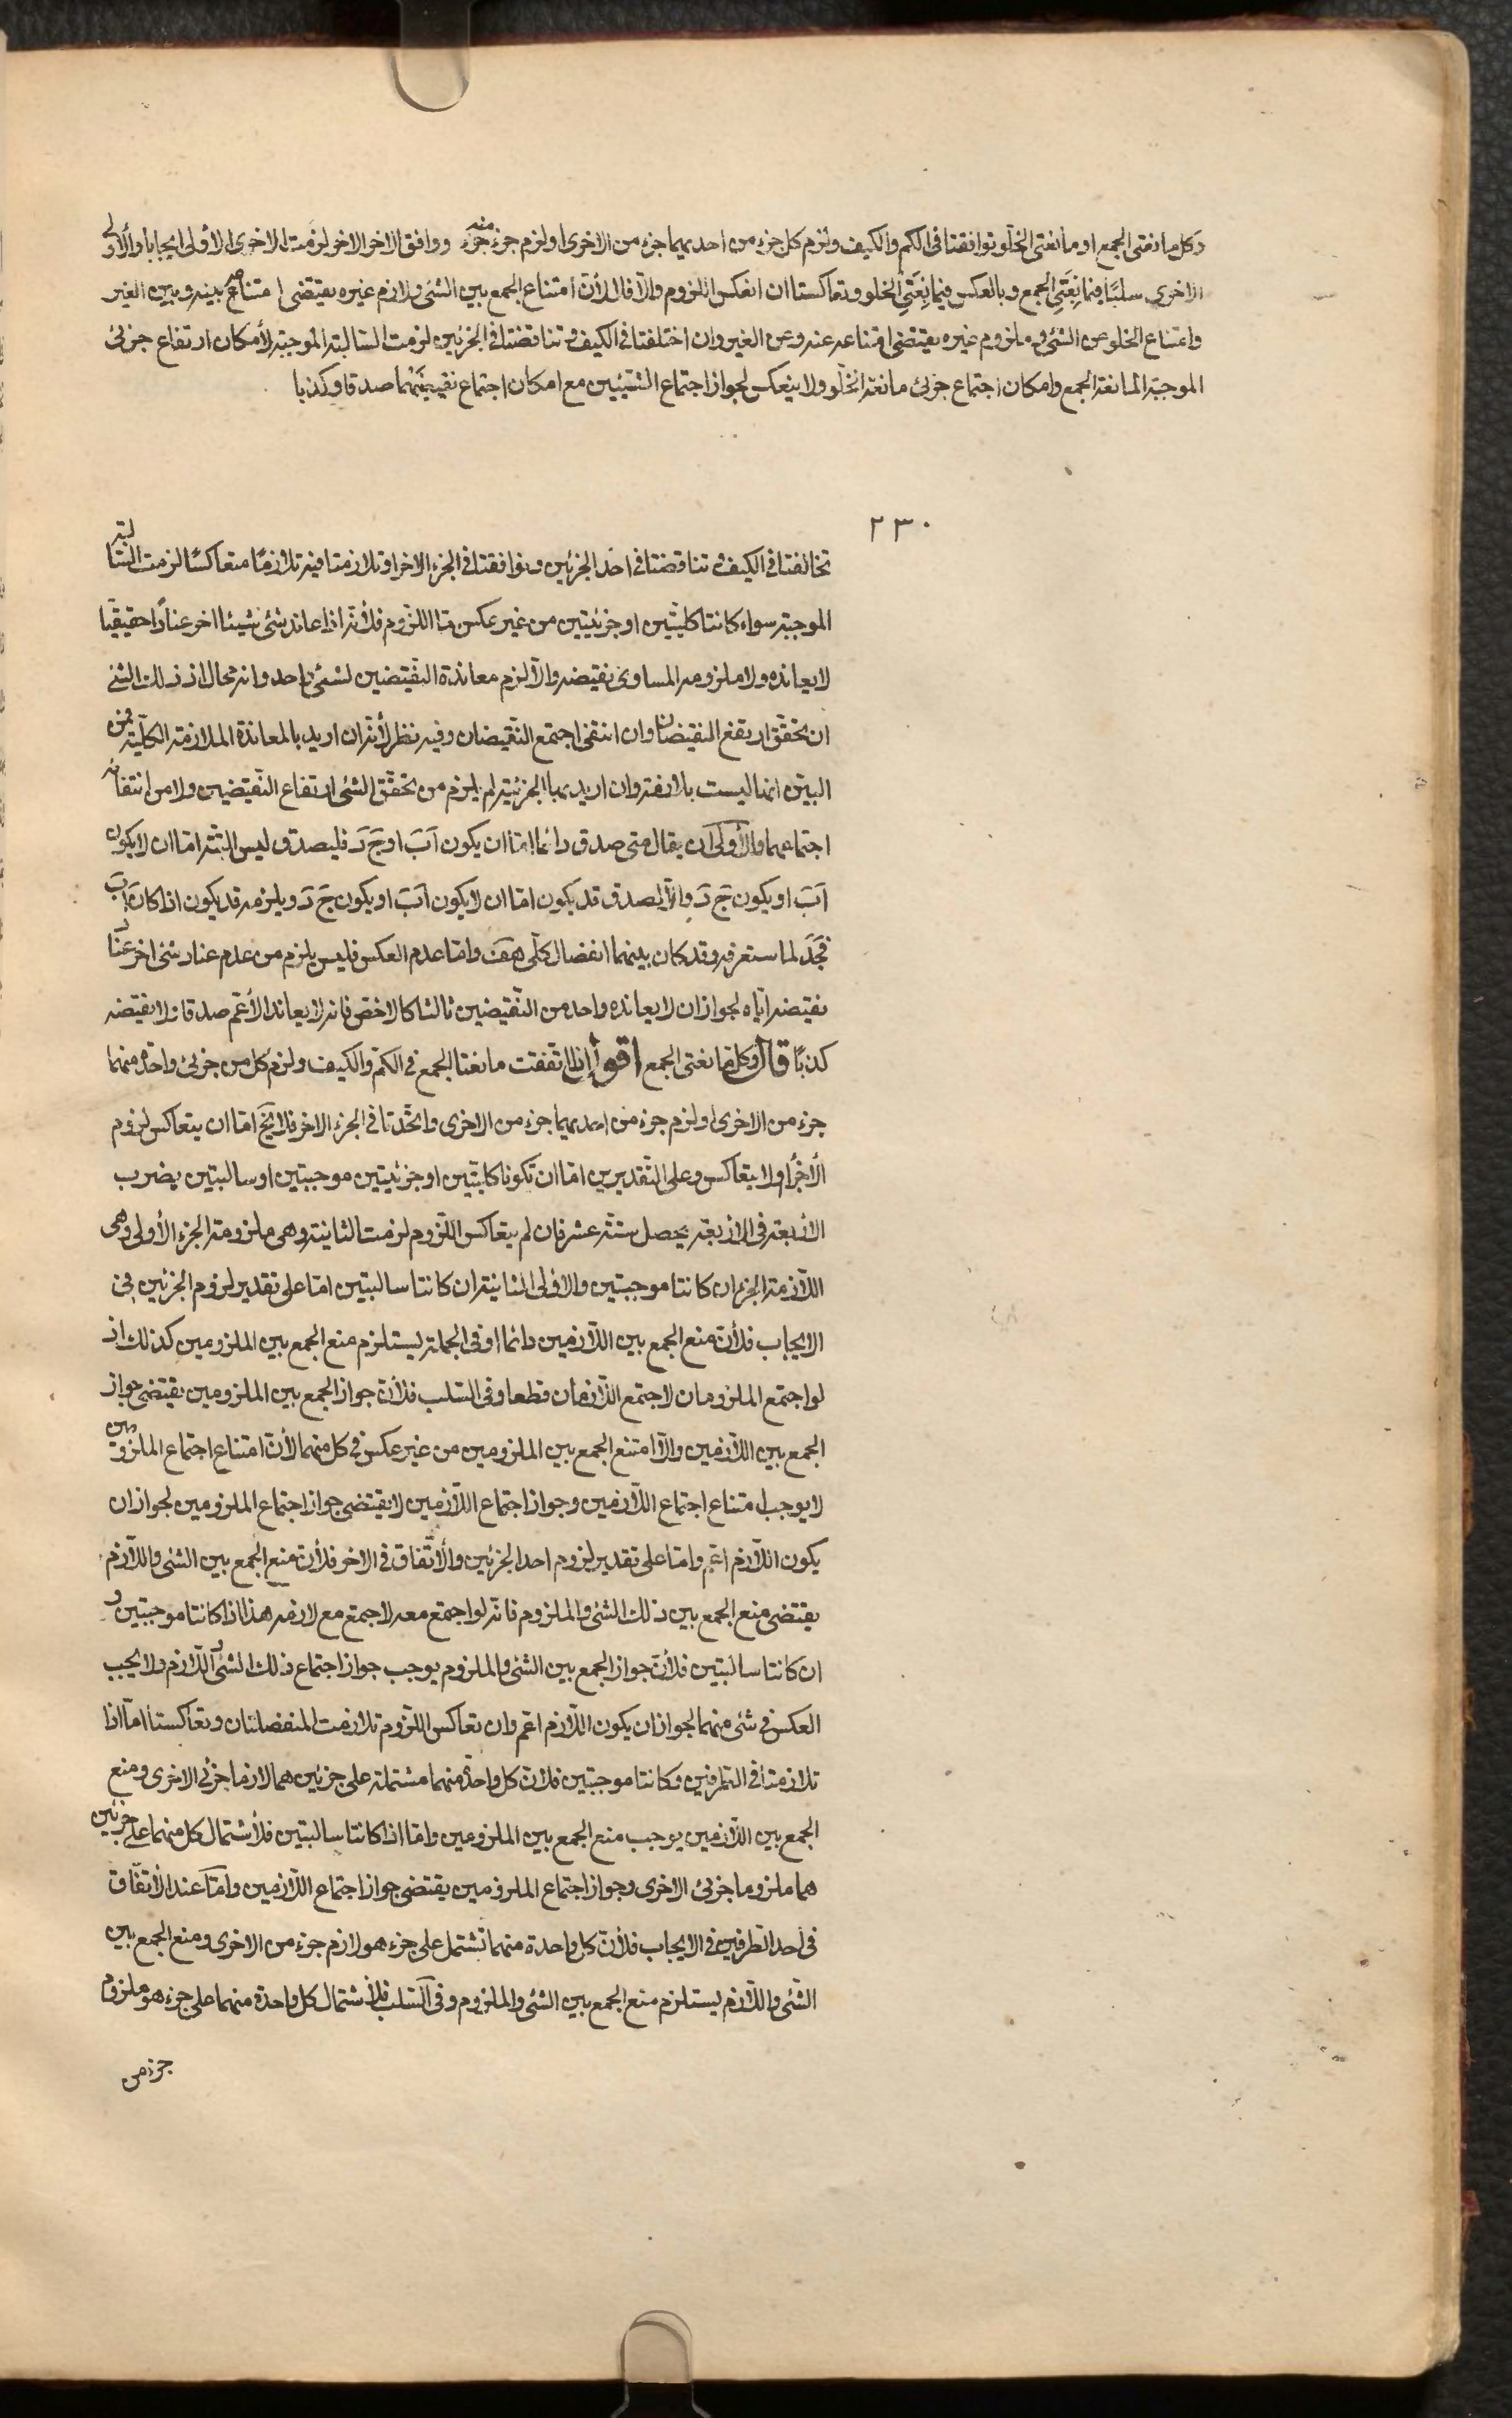 وكل مانعتى الجمع او مانعتى الخلو توافقتا فى الكم والكيف ولزم كل جزء من احديهما جزء من الاخرى او لزم جزء جزء منه ووافق الاخر الاخر لزمت الاخرى الأولى ايجابا والأولى
الاخرى سلبًا فيما نِعَتَىِ الجمع وبالعكس فيما نِعَتَىِ الخلو وتعاكستا ان انعكس اللزوم والّا فلا لأنّ امتناع الجمع بين الشئ ولازم غيره يقتضى امتناعه بينه وبين الغير
وامتناع الخلو عن الشئ وملزوم غيره يقتضى امتناعه عنه وعن الغير وان اختلفتا فى الكيف وتناقضتا فى الجزئين لزمت السّالبة الموجبة لأمكان ارتفاع جزئى
الموجبة المانعة الجمع وامكان اجتماع جزئى مانعة الخلّو ولا ينعكس لجواز اجتماع الشيئين مع امكان اجتماع نقيضيهما صدقا وكذبا
٢٣٠
تخالفتا فى الكيف وتناقضتا فى احد الجزئين وتوافقتا فى الجزء الاخر او تلازمتا فيه تلازمًا متعاكسًا لزمت السّالبة
الموجبة سواء كانتا كليّتين او جزئيتين من غير عكس امّا اللّزوم فلأنّه اذا عاند شئ شيئا اخر عنادًا حقيقيّا
لا يعانده ولا ملزومه المساوى نقيضه والّا لزم معاندة النّقيضين لشئ واحد وانه محال اذ ذلك الشئ
ان تحقّق ارتفع النقيضان وان انتفى اجتمع النّقيضان وفيه نظر لأنّه ان اريد بالمعاندة الملازمة الكليّة فمن
البيّن انها ليست بلازمة وان اريد بها الجزئية لم يلزم من تحقّق الشئ ارتفاع النّقيضين ولا من انتفائه
اجتماعهما والأولى ان يقال متى صدق دائما امّا ان يكون آبَ او جَ دَ فليصدق ليس البتّة امّا ان لا يكون
آبَ او يكون جَ دَ والّا لصدق قد يكون امّا ان لا يكون آبَ او يكون جَ دَ ويلزمه قد يكون اذا كان آبَ
فجَدَ لما ستعرفه وقد كان بينهما انفصال كلّى هف وامّا عدم العكس فليس يلزم من عدم عناد شئ اخر عناد
نقيضه ايّاه لجواز ان لا يعانده واحد من النّقيضين ثالثا كالاخصّ فانه لا يعاند الأعمّ صدقا ولا نقيضه
كذبًا قال وكل مانعتى الجمع اقول اذا اتفقت مانعتا الجمع فى الكمّ والكيف ولزم كل من جزئى واحدة منهما
جزء من الاخرى او لزم جزء من احديهما جزء من الاخرى واتّحدتا فى الجزء الاخر فلا يَخ امّا ان يتعاكس لزوم
الأجزاء او لا يتعاكس وعلى التّقديرين امّا ان تكونا كليّتين او جزئيتين موجبتين او سالبتين يضرب
الأربعة فى الاربعة يحصل ستّة عشر فان لم يتعاكس اللّزوم لزمت الثانية وهى ملزومة الجزء الأولى وهى
اللّازمة الجزء ان كانتا موجبتين والأولى الثانية ان كانتا سالبتين امّا على تقدير لزوم الجزئين فى
الايجاب فلأنّ منع الجمع بين اللّازمين دائما او فى الجملة يستلزم منع الجمع بين الملزومين كذلك اذ
لو اجتمع الملزومان لاجتمع اللّازمان قطعا وفى السّلب فلأنّ جواز الجمع بين الملزومين يقتضى جواز
الجمع بين اللّازمين والّا امتنع الجمع بين الملزومين من غير عكس فى كل منهما لأنّ امتناع اجتماع الملزومين
لا يوجب امتناع اجتماع اللّازمين وجواز اجتماع اللّازمين لا يقتضى جواز اجتماع الملزومين لجواز ان
يكون اللّازم اعمّ وامّا على تقدير لزوم احد الجزئين والأتّفاق فى الاخر فلأنّ منع الجمع بين الشئ واللّازم
يقتضى منع الجمع بين ذلك الشئ والملزوم فانّه لو اجتمع معه لاجتمع مع لازمه هذا اذا كانتا موجبتين و
ان كانتا سالبتين فلأنّ جواز الجمع بين الشئ والملزوم يوجب جواز اجتماع ذلك الشئ واللّازم ولا يجب
العكس فى شئ منهما لجواز ان يكون اللّازم اعمّ وان تعاكس اللّزوم تلازمت المنفصلتان وتعاكستا امّا اذا
تلازمتا فى الطرفين وكانتا موجبتين فلأنّ كل واحدة منهما مشتملة على جزئين هما لازما جزئى الاخرى ومنع
الجمع بين اللّازمين يوجب منع الجمع بين الملزومين وامّا اذا كانتا سالبتين فلأشتمال كل منهما على جزئين
هما ملزوما جزئى الاخرى وجواز اجتماع الملزومين يقتضى جواز اجتماع اللّازمين وامّا عند الأتّفاق
فى احد الطرفين فى الايجاب فلأنّ كل واحدة منهما تشتمل على جزء هو لازم جزء من الاخرى ومنع الجمع بين
الشّئ واللّازم يستلزم منع الجمع بين الشئ والملزوم وفى السّلب فلأشتمال كل واحدة منهما على جزء هو ملزوم
جزء من